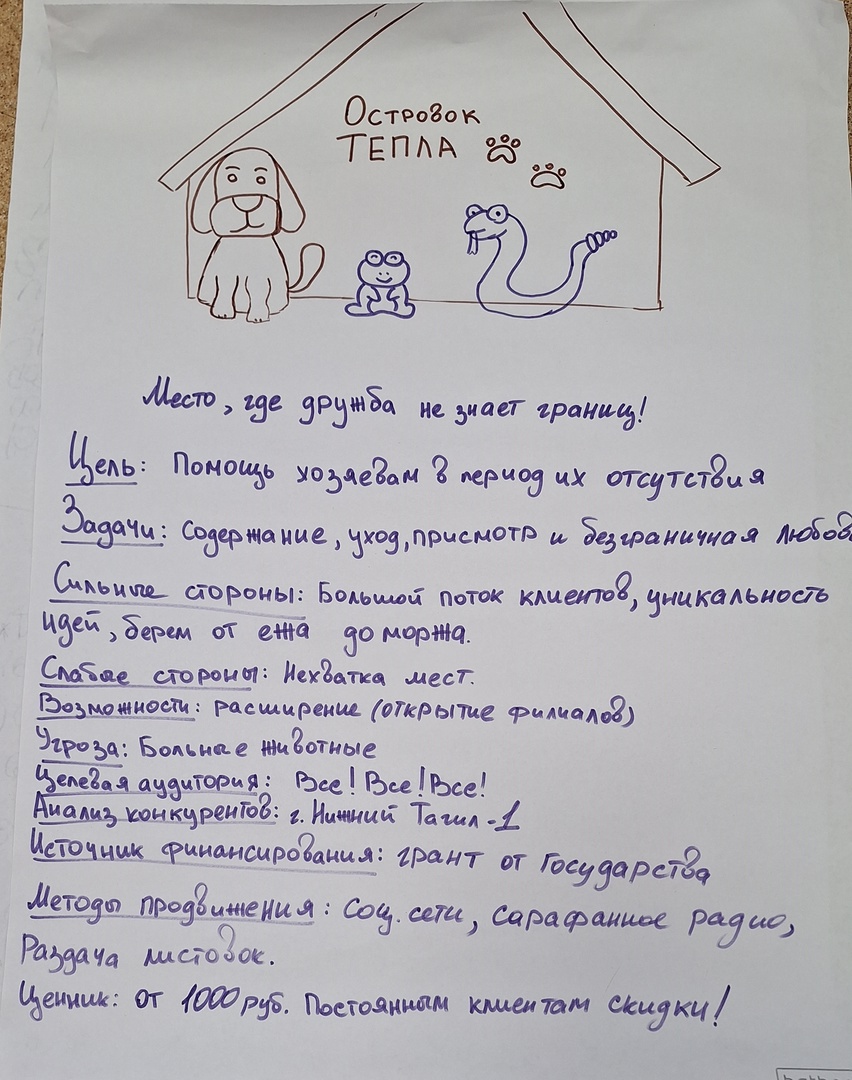 Островок
ТЕПЛА
Место, где дружба не знает границ!
Цель: Помощь хозяевам в период их отсутствия
Задачи: Содержание, уход, присмотр и безграничная любов
Сильные стороны: Большой поток клиентов, уникальность
идей, берем от ежа до моржа.
Слабые стороны: Нехватка мест.
Возможности: расширение (открытие филиалов)
Угроза: Больные животные
Целевая аудитория: Все! Все! Все!
Анализ конкурентов: г. Нижний Тагил -1
Источник финансирования: грант от Государства
Методы продвижения: Соц. сети, сарафанное радио,
Раздача листовок.
Ценник: от 1000 руб. Постоянным клиентам скидки!